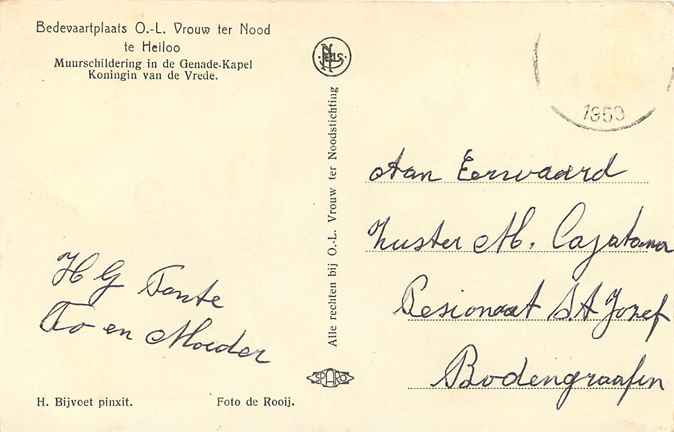 Bedevaartplaats O.-L. Vrouw ter Nood
te Heiloo
Muurschildering in de Genade-Kapel
Koningin van de Vrede.
NELS
1950
Alle rechten bij O.-L. Vrouw ter Noodstichting
Aan Eerwaard
Zuster M. Cajetana
Pesionaat St Jozef
Bodengraafen
H G Tante
To en Moeder
H. Bijvoet pinxit.
Foto de Rooij.